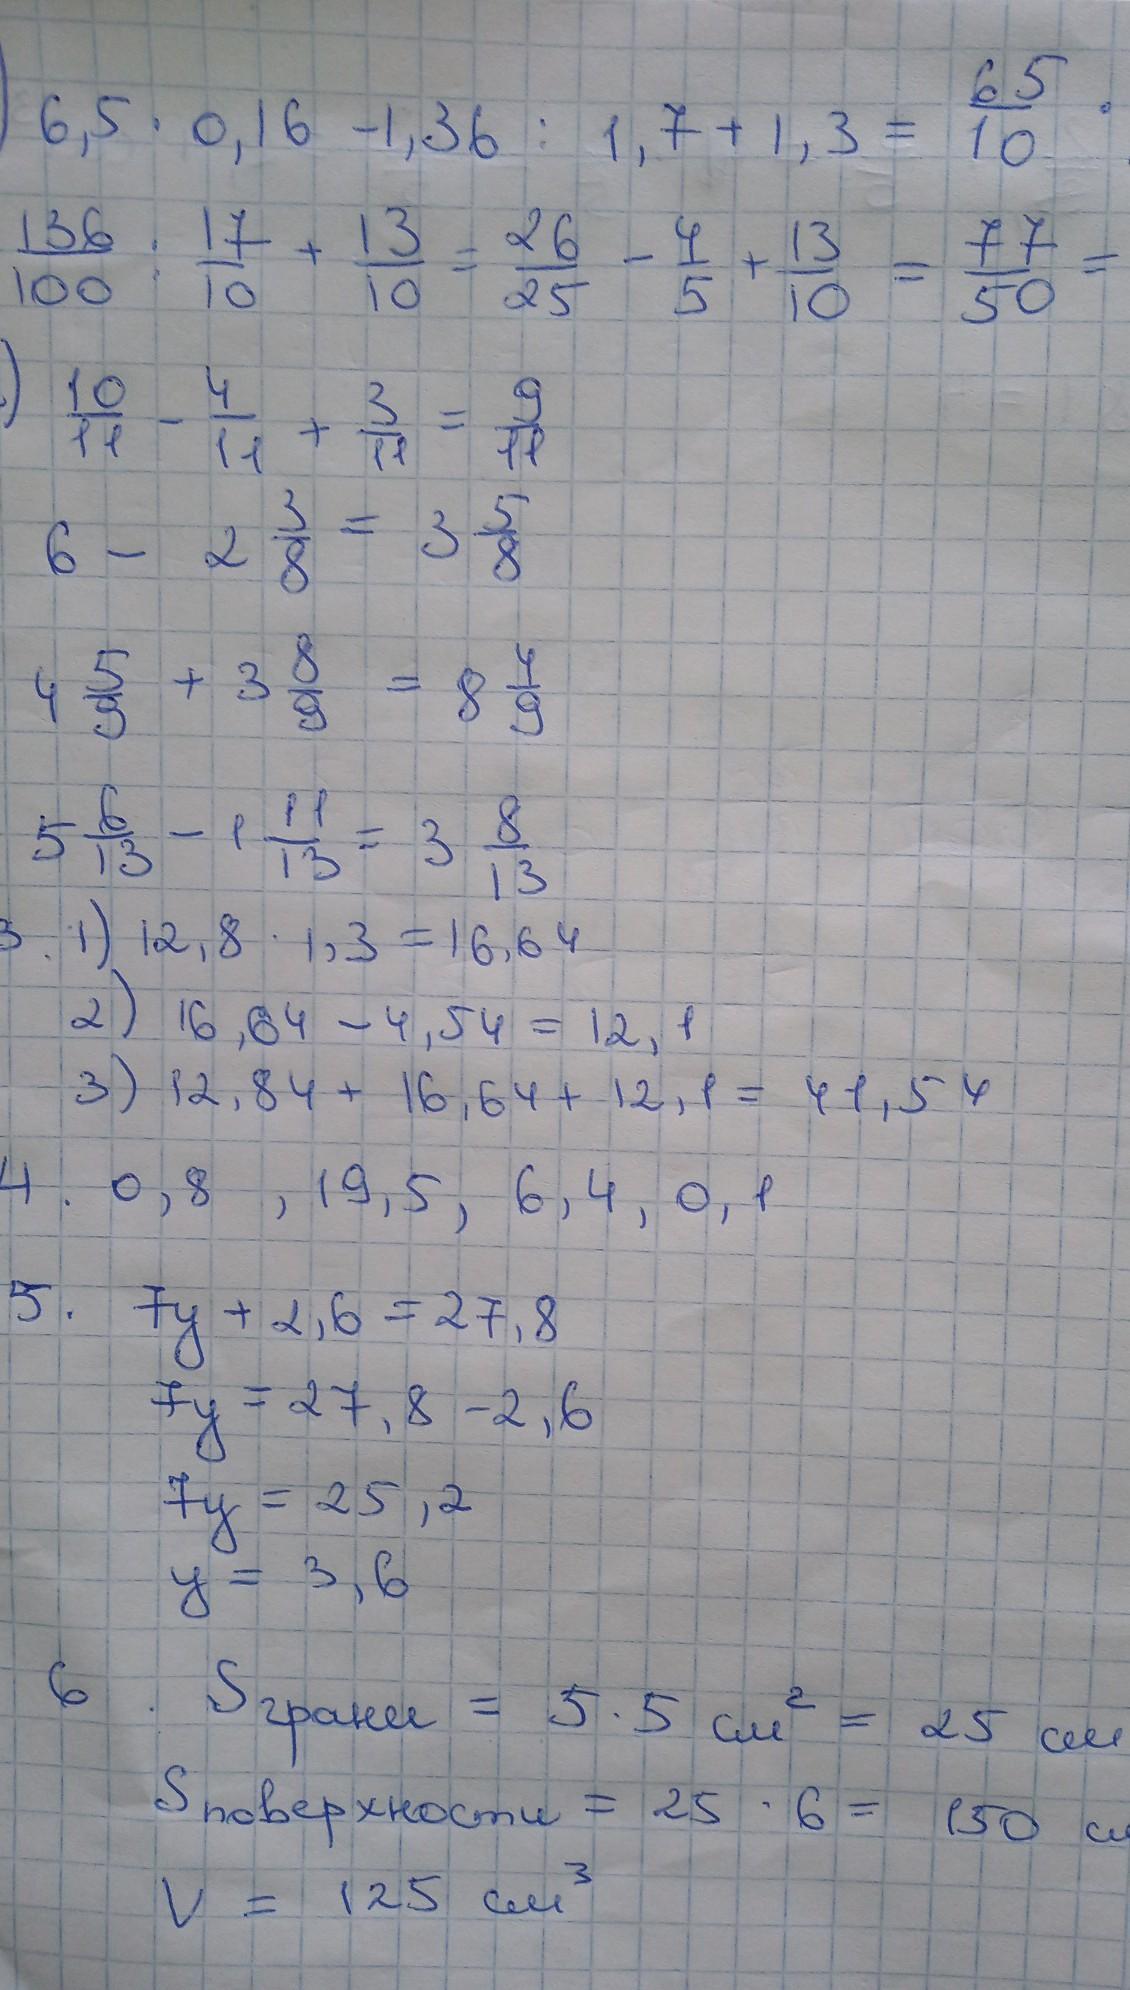 ) 6,5 · 0,16 - 1,36 : 1,7 + 1,3 = 65/10 ·
136/100 : 17/10 + 13/10 = 26/25 - 4/5 + 13/10 = 77/50 =
) 10/11 - 4/11 + 3/11 = 9/11
6 - 2 3/8 = 3 5/8
4 5/9 + 3 8/9 = 8 4/9
5 6/13 - 1 11/13 = 3 8/13
3. 1) 12,8 · 1,3 = 16,64
2) 16,64 - 4,54 = 12,1
3) 12,84 + 16,64 + 12,1 = 41,54
4. 0,8 , 19,5, 6,4, 0,1
5. 7y + 2,6 = 27,8
7y = 27,8 - 2,6
7y = 25,2
y = 3,6
6. Sграни = 5 · 5 см² = 25 см
Sповерхности = 25 · 6 = 150 см
V = 125 см³